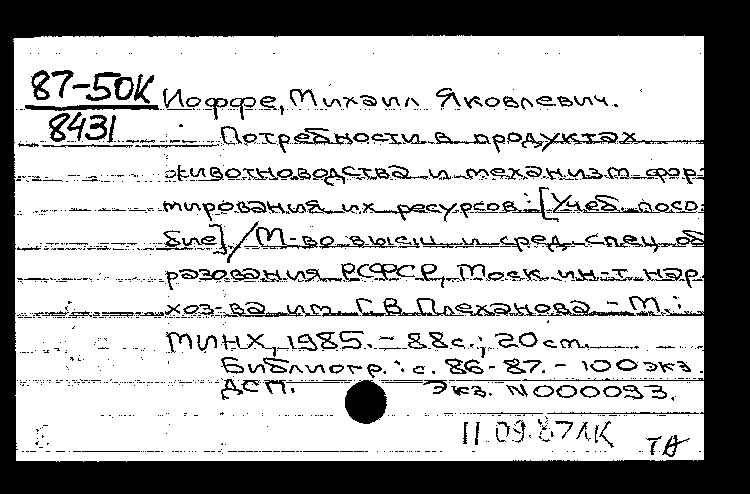 87-50К
8431
Иоффе, Михаил Яковлевич.
Потребности в продуктах
животноводства и механизм фор-
мирования их ресурсов: [Учеб. посо-
бие] / М-во высш. и сред. спец. об-
разования РСФСР, Моск. ин-т нар.
хоз-ва им. Г. В. Плеханова. - М.:
МИНХ, 1985. - 88 с.; 20 см.
Библиогр.: с. 86-87. - 100 экз.
ДСП. Экз. N 000093.
11.09.87 ЛК ТА